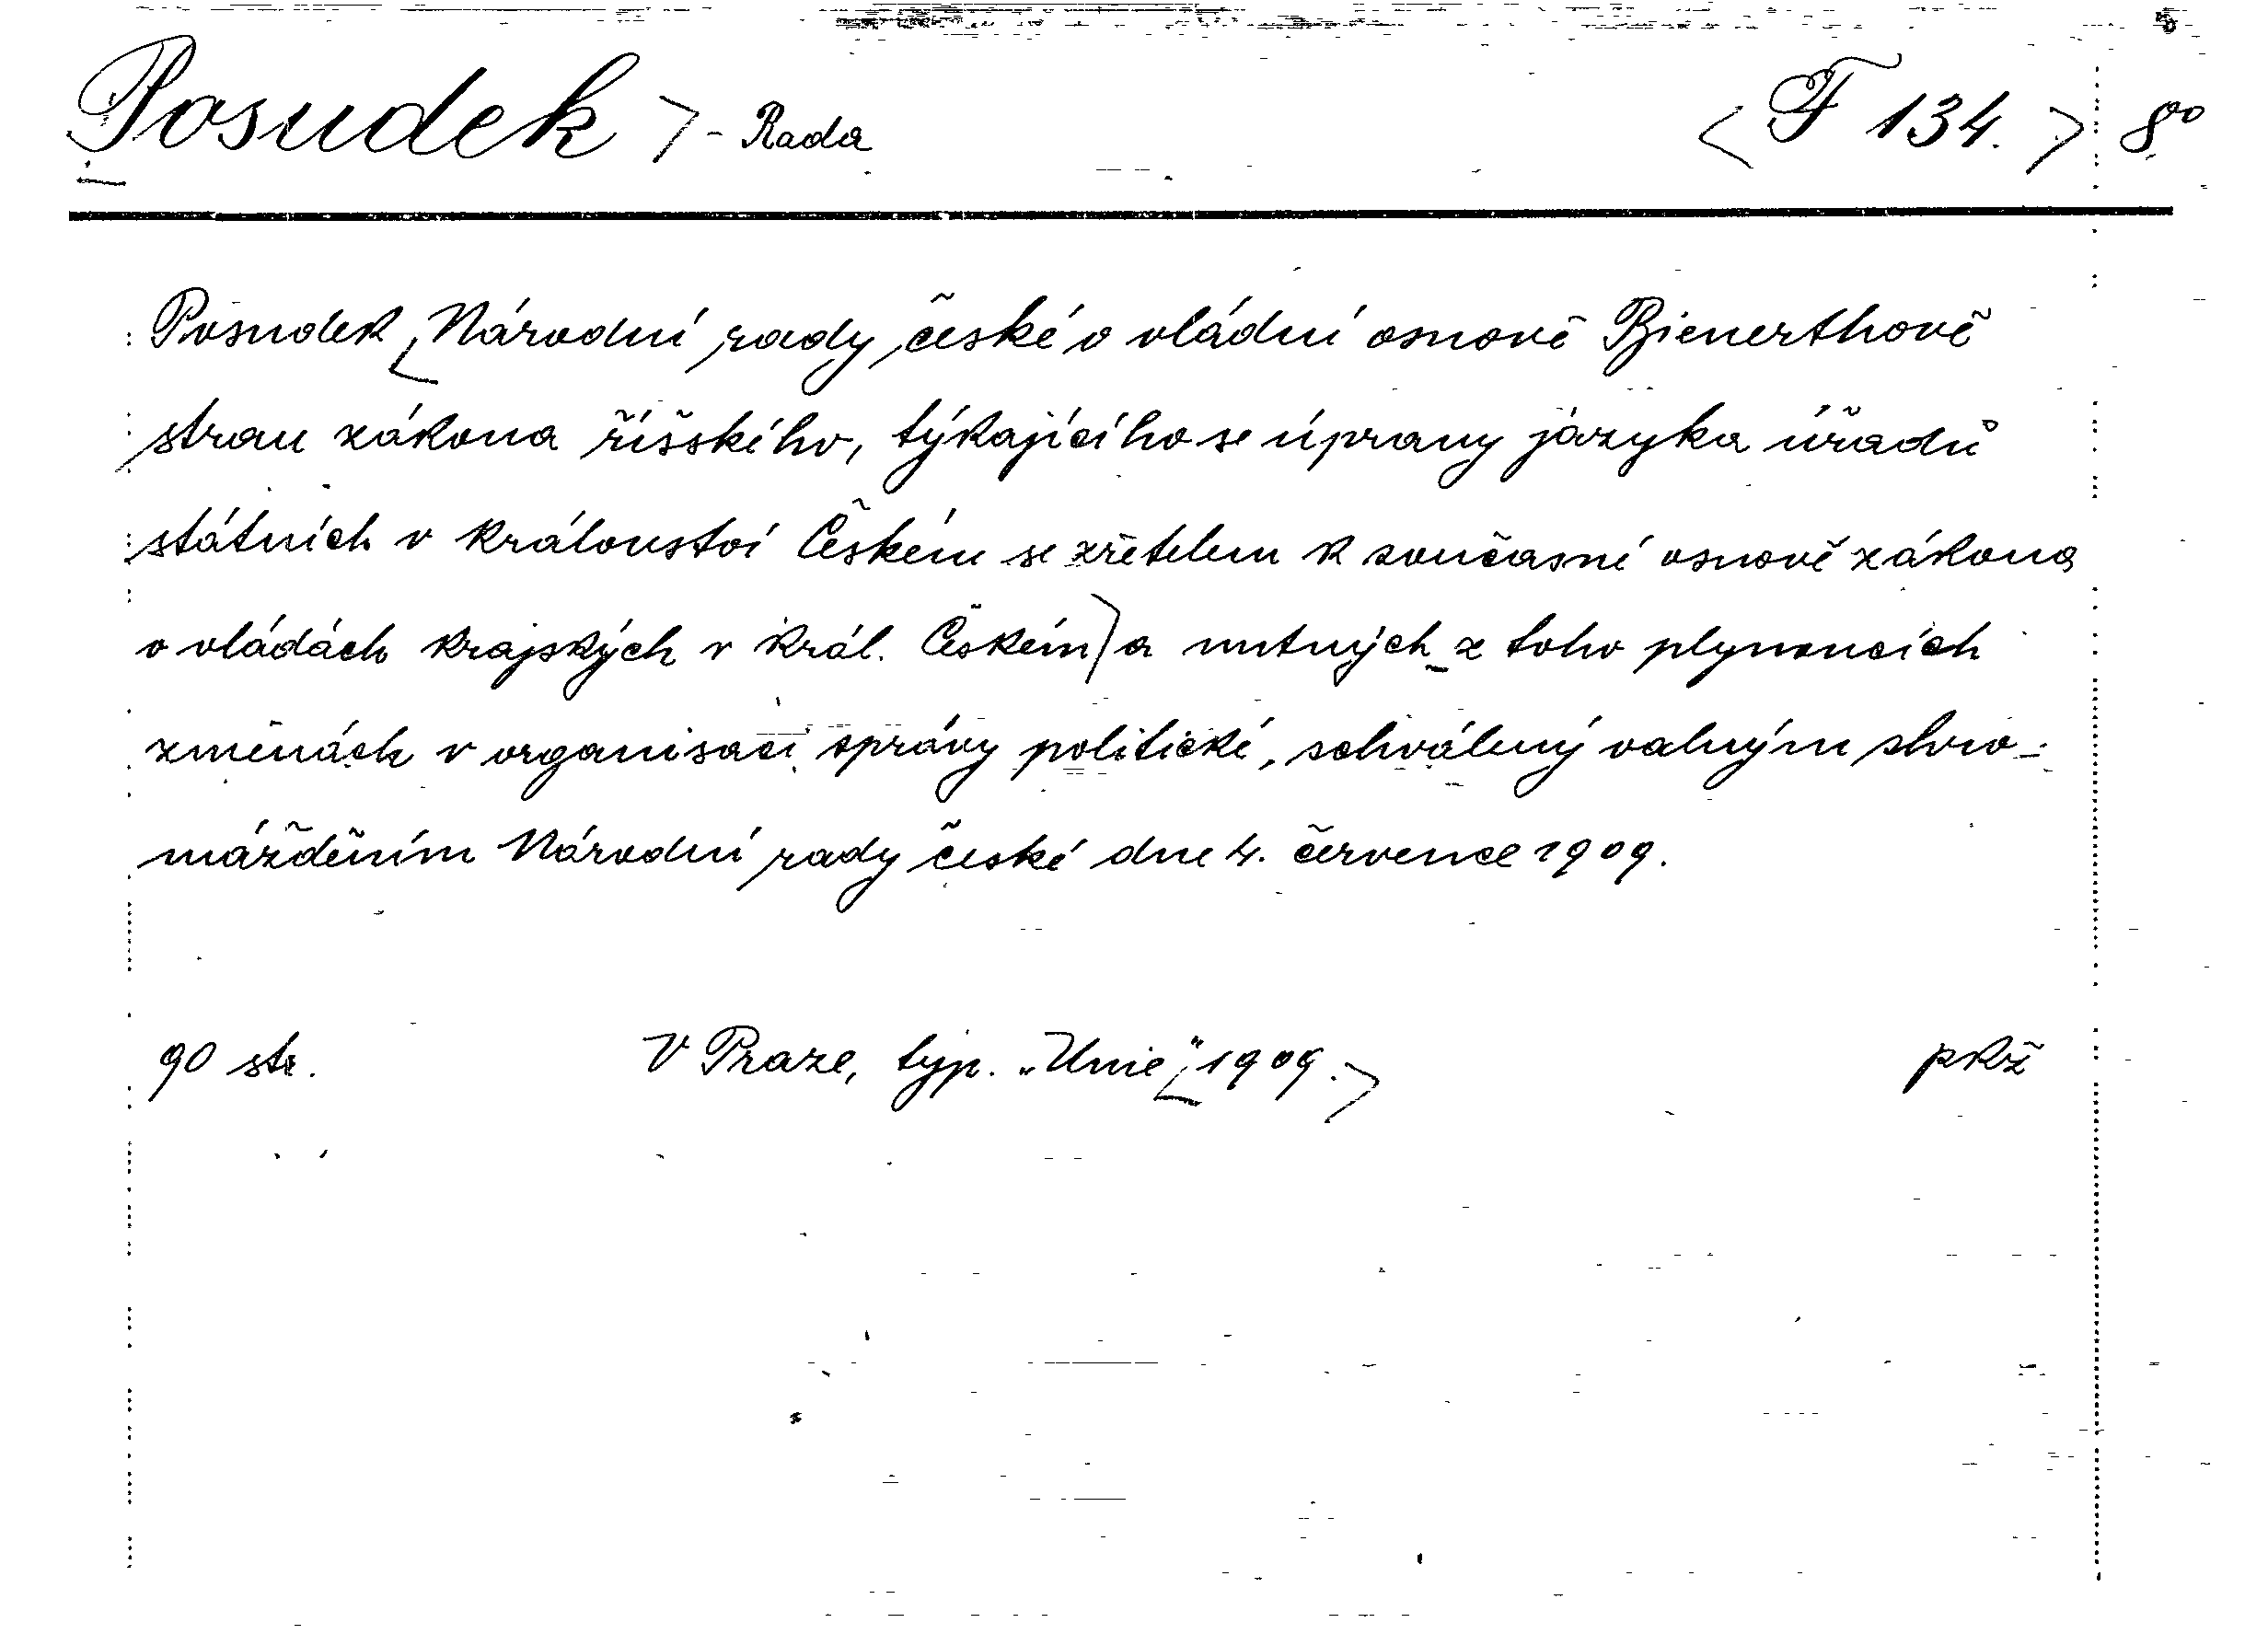 Posudek > - Rada < F 134. > 8°
Posudek Národní rady české o vládní osnově Bienerthově
stran zákona říšského, týkajícího se úpravy jazyka úřadů
státních v království Českém se zřetelem k současné osnově zákona
o vládách krajských v král. Českém) a nutných z toho plynoucích
změnách v organisaci správy politické, schválený valným shro-
mážděním Národní rady české dne 4. července 1909.
90 str. V Praze, typ. „Unie“ 1909. > pkž